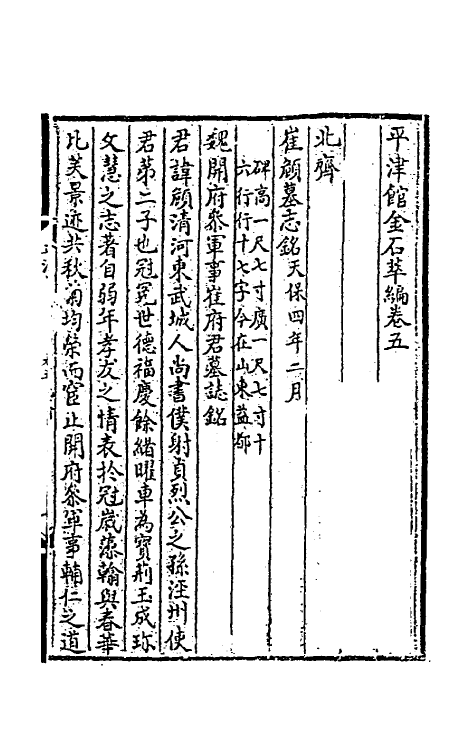 平津館金石萃編卷五
北齊
崔頠墓志銘天保四年二月
碑高一尺七寸廣一尺七寸十
六行行十七字今在山東益都
魏開府叅軍事崔府君墓誌銘
君諱頠清河東武城人尚書僕射貞烈公之孫涇州使
君苐二子也冠冕世德福慶餘緒曜車為寶荊玉成珎
文慧之志著自弱年孝友之情表扵冠歲藻翰與春華
比芙景迹共秋菊均榮而宦止開府叅軍事輔仁之道